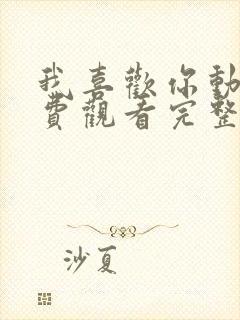 我喜歡你動
費觀看完整
沙夏